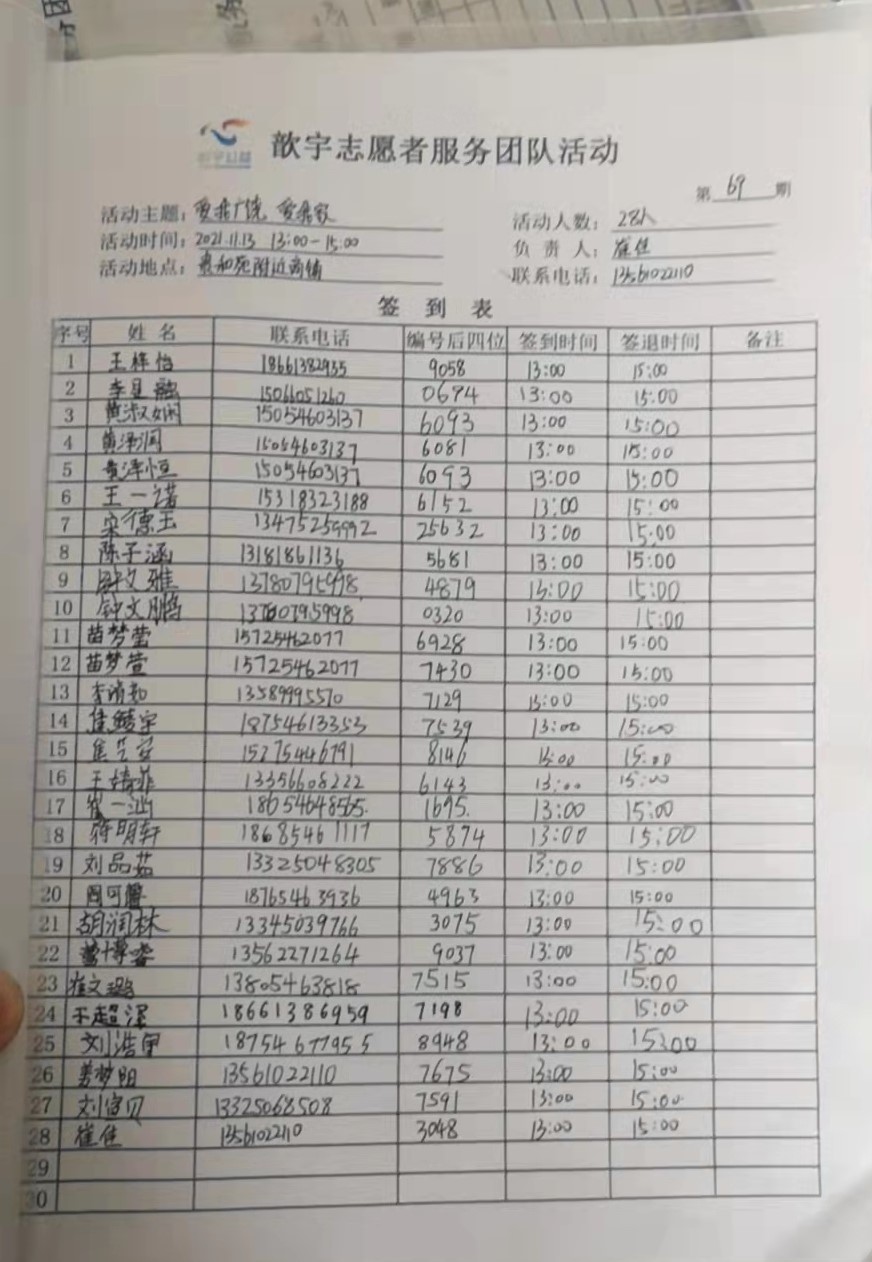 歆宇志愿者服务团队活动
第 69 期
活动主题： 活动人数：28人
活动时间：2021.11.13 13:00-15:00 负责人：崔佳
活动地点： 附近商铺 联系电话：13561022110
签到表
序号 姓名 联系电话 编号后四位 签到时间 签退时间 备注
1 王梓怡 18661382935 9058 13:00 15:00
2 李昱融 15066051260 0694 13:00 15:00
3 黄淑娴 15054603137 6093 13:00 15:00
4 黄泽润 15054603137 6081 13:00 15:00
5 黄泽恒 15054603137 6093 13:00 15:00
6 王一诺 15318323188 6152 13:00 15:00
7 宋德玉 13475259992 25632 13:00 15:00
8 陈子涵 13181861136 5681 13:00 15:00
9 文雅 13780795998 4879 13:00 15:00
10 钟文鹏 13780795998 0320 13:00 15:00
11 苗梦莹 15725462077 6928 13:00 15:00
12 苗梦萱 15725462077 7430 13:00 15:00
13 13589995570 7129 13:00 15:00
14 18754613353 7539 13:00 15:00
15 15275446791 8146 13:00 15:00
16 王婧菲 13356608222 6143 13:00 15:00
17 崔一涵 18654648565 1695 13:00 15:00
18 蒋明轩 18685461117 5874 13:00 15:00
19 刘品茹 13325048305 7886 13:00 15:00
20 周可馨 18765463936 4963 13:00 15:00
21 胡润林 13345039766 3075 13:00 15:00
22 13562271264 9037 13:00 15:00
23 崔文璐 13805463818 7515 13:00 15:00
24 王超泽 18661386959 7198 13:00 15:00
25 刘浩宇 18754677955 8948 13:00 15:00
26 姜梦阳 13561022110 7675 13:00 15:00
27 刘富贝 13325068508 7591 13:00 15:00
28 崔佳 13561022110 3048 13:00 15:00
29
30